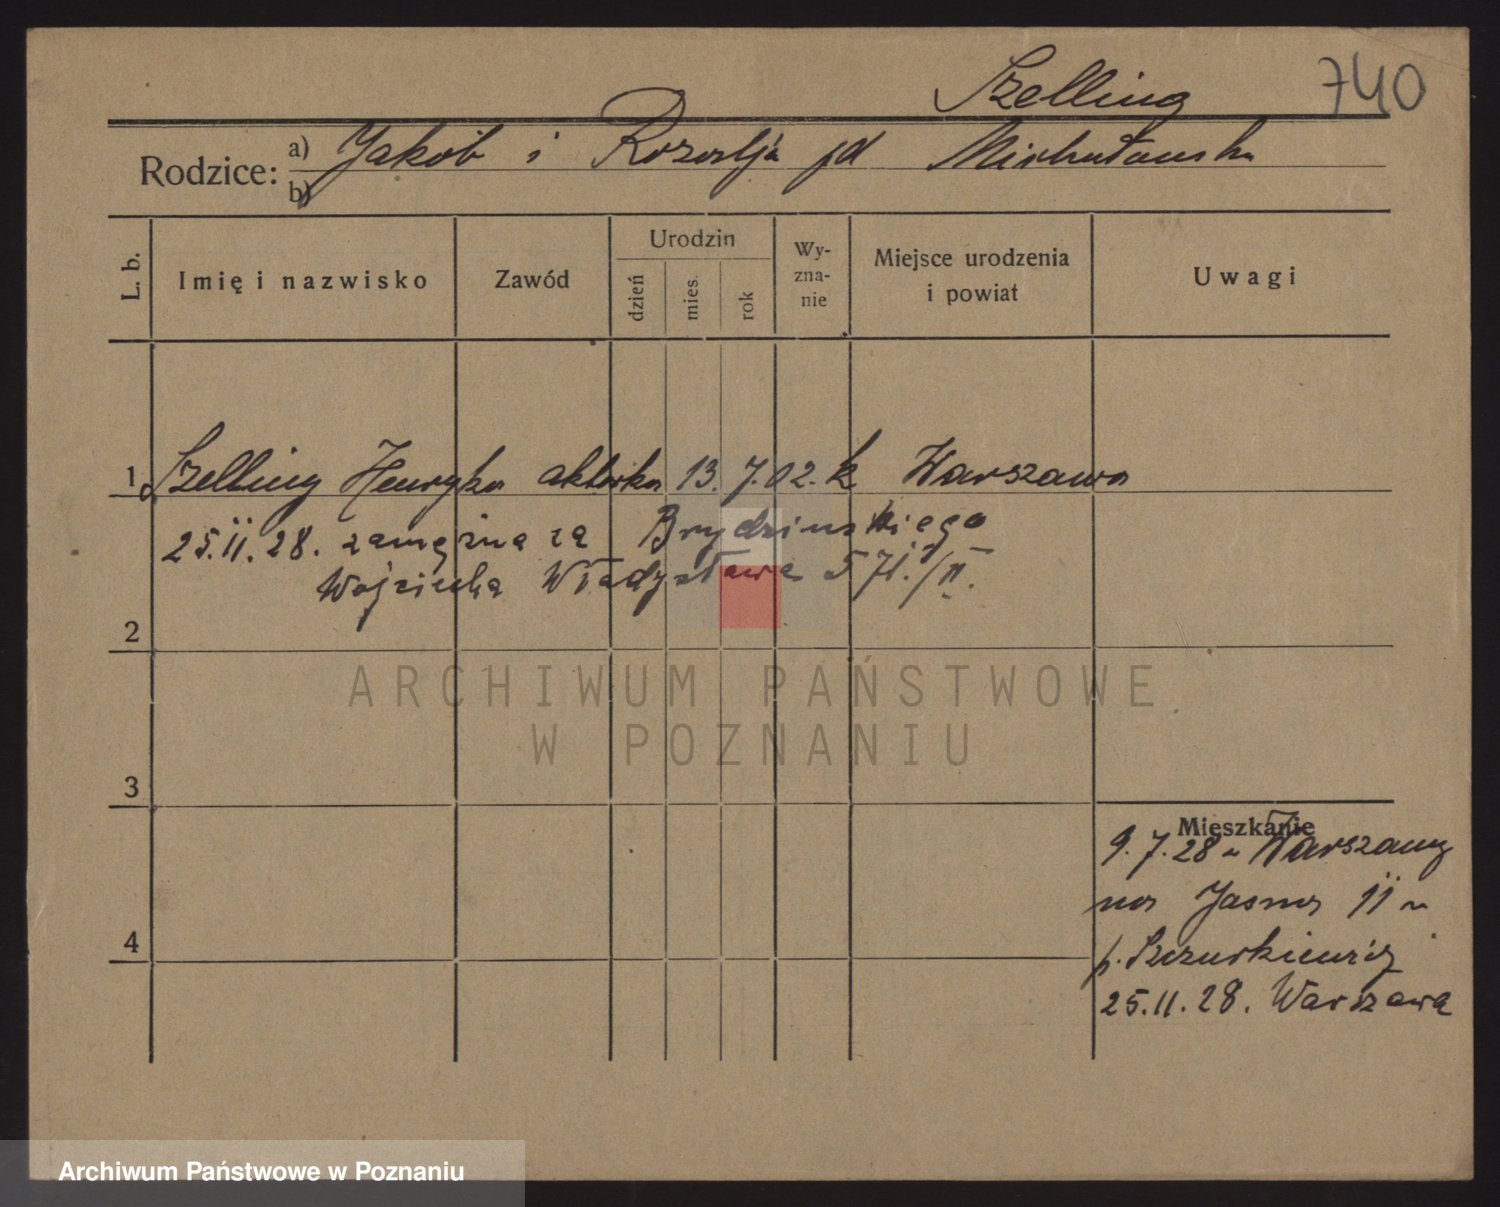 Szelling 740
Rodzice: a) Jakób i Rozalja
b)
L. b.
Imię i nazwisko
Zawód
Urodzin
dzień
mies.
rok
Wy-
zna-
nie
Miejsce urodzenia
i powiat
Uwagi
1 Szelling Henryka aktorka 13. 7. 02. k Warszawa
25.11.28. zamężna za Brydzinskiego
Wojciecha Władysława
2
3
4
Mieszkanie
9.7.28 Warszawy
na Jasna 11
p. Szczurkiewicz
25.11.28. Warszawa
ARCHIWUM PAŃSTWOWE
W POZNANIU
Archiwum Państwowe w Poznaniu